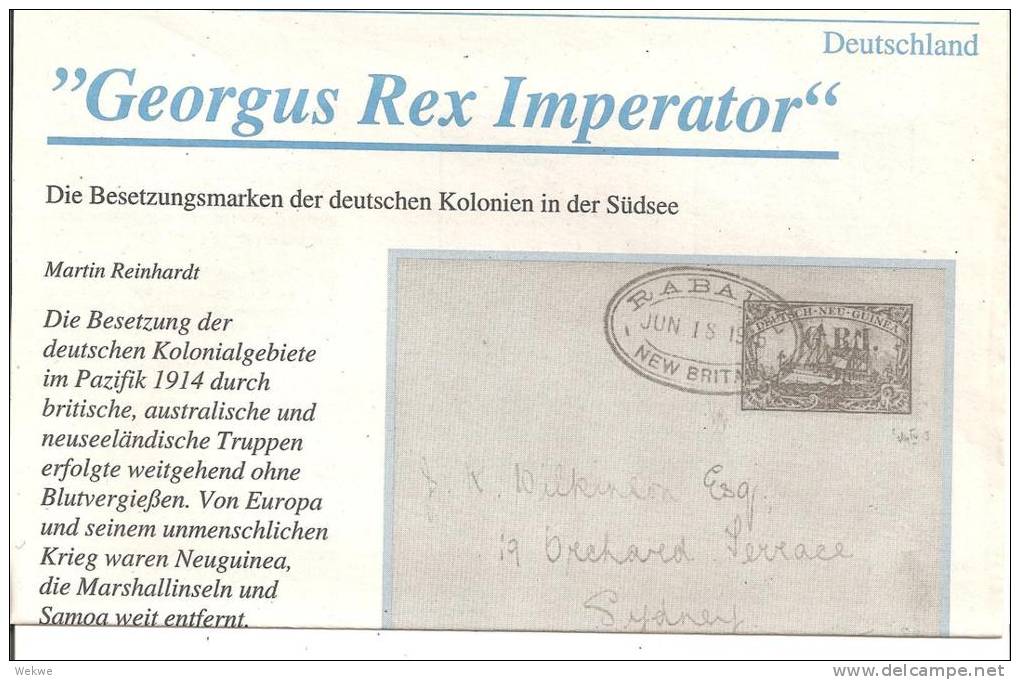 Deutschland
”Georgus Rex Imperator“
Die Besetzungsmarken der deutschen Kolonien in der Südsee
Martin Reinhardt
Die Besetzung der
deutschen Kolonialgebiete
im Pazifik 1914 durch
britische, australische und
neuseeländische Truppen
erfolgte weitgehend ohne
Blutvergießen. Von Europa
und seinem unmenschlichen
Krieg waren Neuguinea,
die Marshallinseln und
Samoa weit entfernt.
RABAUL
JUN 18
NEW BRITN
DEUTSCH-NEU-GUINEA
G.R.I.
J. K. Wilkinson Esq.
19 Orchard Terrace
Sydney
Wekwe
delcampe.net